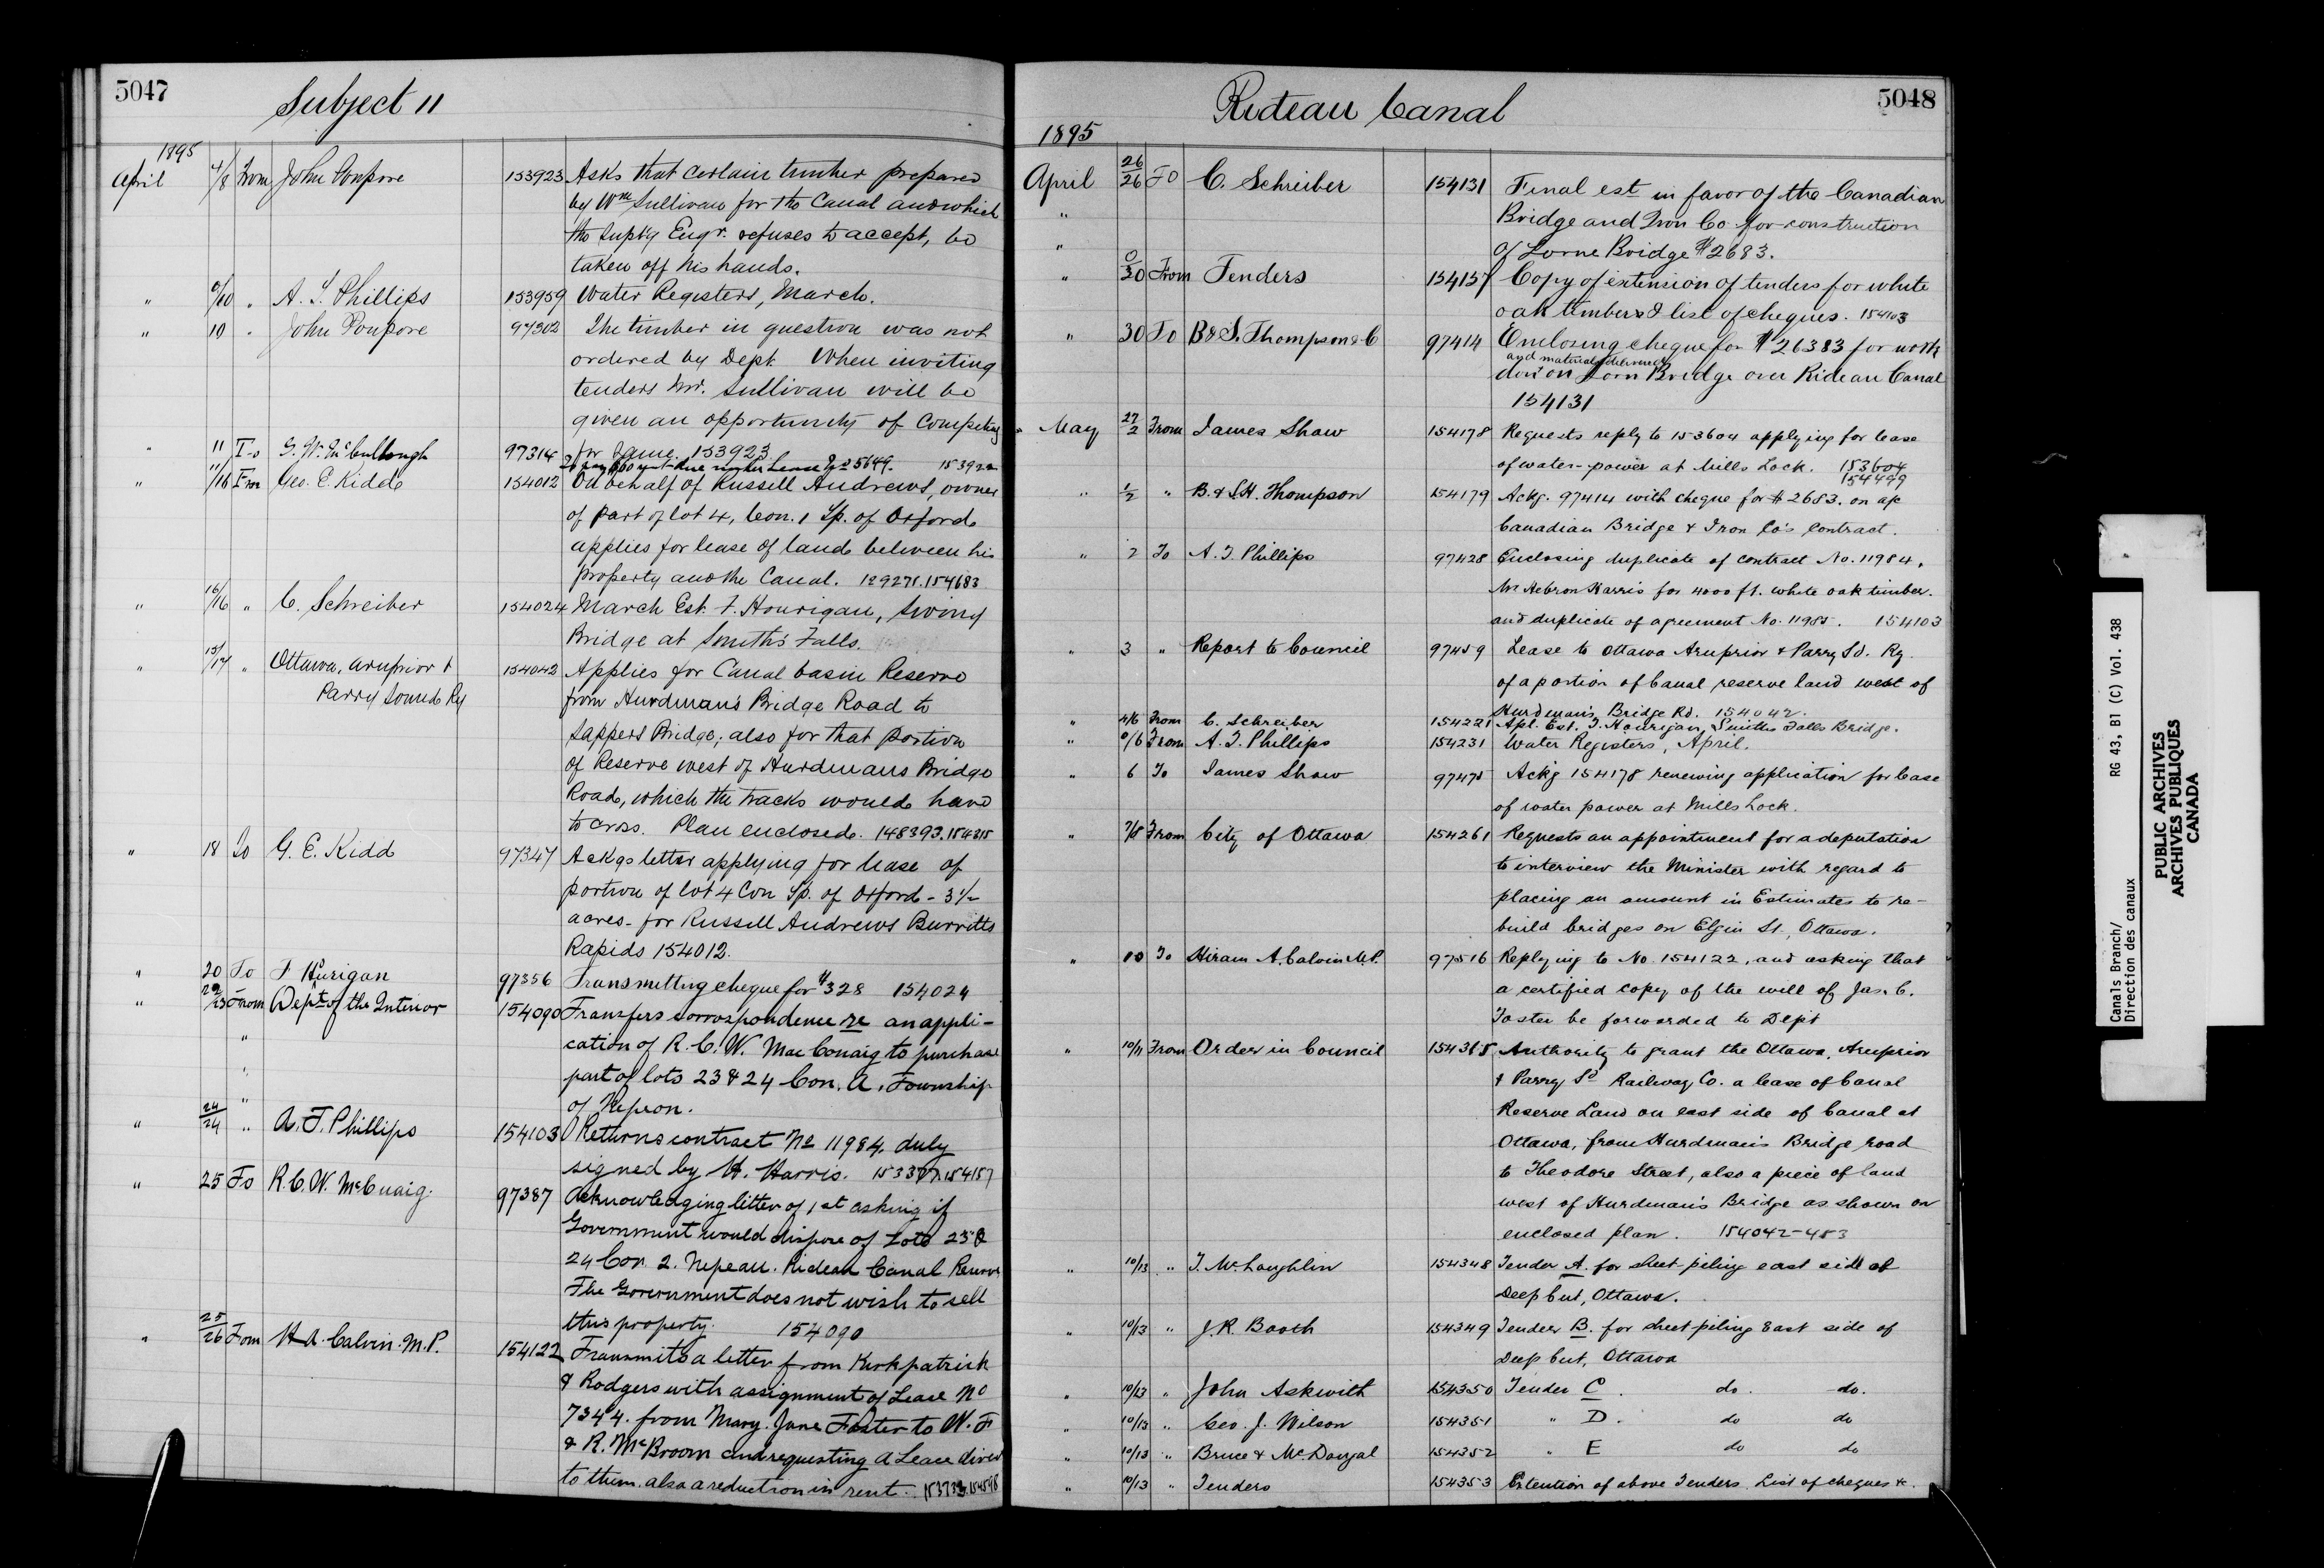 5047
Subject 11
1895
April 4/8 From John Poupore 153923 Asks that certain timber prepared
by Wm Sullivan for the Canal and which
the Supt'g Engr. refuses to accept, be
taken off his hands.
" 9/10 " A. T. Phillips 153959 Water Registers, March.
" 10 " John Poupore 97302 The timber in question was not
ordered by Dept. When inviting
tenders Mr. Sullivan will be
given an opportunity of competing
for same. 153923
" 11 To G. W. McCullough 97314 To pay $60 rent due under Lease No 5649. 153922
" 11/16 From Geo. E. Kidd 154012 On behalf of Russell Andrews, owner
of part of lot 4, Con. 1 Tp. of Oxford
applies for lease of land between his
property and the Canal. 129271. 154683
" 16/16 " C. Schreiber 154024 March Est. F. Hourigan, Swing
Bridge at Smith's Falls.
" 15/17 " Ottawa, Arnprior & 154042 Applies for Canal basin Reserve
Parry Sound Ry from Hurdman's Bridge Road to
Sappers Bridge; also for that portion
of Reserve west of Hurdmans Bridge
Road, which the tracks would have
to cross. Plan enclosed. 148393. 154315
" 18 To G. E. Kidd 97347 Ackgs letter applying for lease of
portion of lot 4 Con Tp. of Oxford - 3 1/2
acres - for Russell Andrews Burritts
Rapids 154012.
" 20 To F Hourigan 97356 Transmitting cheque for $328 154024
" 22/23 From Dept of the Interior 154090 Transfers correspondence re an appli-
" cation of R. C. W. MacCuaig to purchase
" part of lots 23 & 24 Con. A, Township
" of Nepean.
" 24/24 " A. T. Phillips 154103 Returns contract No 11984, duly
signed by H. Harris. 153377. 154157
" 25 To R. C. W. McCuaig. 97387 Acknowledging letter of 1st asking if
Government would dispose of Lots 23 &
24 Con. 2. Nepean. Rideau Canal Reserve
The Government does not wish to sell
this property. 154090
" 25/26 From H A. Calvin. M.P. 154122 Transmits a letter from Kirkpatrick
& Rodgers with assignment of Lease No
7344. from Mary. Jane Foster to W. F
& R. McBroom and requesting a Lease direct
to them. also a reduction in rent. 153733. 154598
Rideau Canal
5048
1895
April 26/26 To C. Schreiber 154131 Final est in favor of the Canadian
" Bridge and Iron Co. for construction
" of Lorne Bridge $2683.
" 0/30 From Tenders 154157 Copy of extension of tenders for white
oak timbers & list of cheques. 154103
" 30 To B & S. Thompson & C 97414 Enclosing cheque for $26383 for work
and materials delivered
done on Lorn Bridge over Rideau Canal
154131
" May 27/2 From James Shaw 154178 Requests reply to 153604 applying for lease
of water-power at Mills Lock. 153604
154499
" 1/2 " B. & S. H. Thompson 154179 Ackg. 97414 with cheque for $2683. on a/c
Canadian Bridge & Iron Co's Contract.
" 2 To A. T. Phillips 97428 Enclosing duplicate of contract No. 11984,
Mr Hebron Harris for 4000 ft. white oak timber.
and duplicate of agreement No. 11985. 154103
" 3 " Report to Council 97459 Lease to Ottawa Arnprior & Parry Sd. Ry.
of a portion of Canal reserve land west of
Hurdman's Bridge Rd. 154042.
" 4/6 From C. Schreiber 154221 Apl. Est. T. Hourigan, Smiths Falls Bridge.
" 0/6 From A. T. Phillips 154231 Water Registers, April.
" 6 To James Shaw 97475 Ackg 154178 renewing application for lease
of water power at Mills Lock.
" 7/8 From City of Ottawa 154261 Requests an appointment for a deputation
to interview the Minister with regard to
placing an amount in Estimates to re-
build bridges on Elgin St., Ottawa.
" 10 To Hiram A. Calvin M.P. 97516 Replying to No. 154122, and asking that
a certified copy of the will of Jas. C.
Foster be forwarded to Dept
" 10/11 From Order in Council 154315 Authority to grant the Ottawa, Arnprior
& Parry Sd Railway Co. a lease of Canal
Reserve Land on east side of Canal at
Ottawa, from Hurdman's Bridge road
to Theodore Street, also a piece of land
west of Hurdman's Bridge as shown on
enclosed plan. 154042-483
" 10/13 " T. McLaughlin 154348 Tender A. for sheet piling east side of
Deep Cut, Ottawa.
" 10/13 " J. R. Booth 154349 Tender B. for sheet piling East side of
Deep Cut, Ottawa
" 10/13 " John Askwith 154350 Tender C. do. do.
" 10/13 " Geo. J. Wilson 154351 " D. do do
" 10/13 " Bruce & McDougal 154352 " E do do
" 10/13 " Tenders 154353 Extention of above Tenders List of cheques &c.
Canals Branch/
Direction des canaux
RG 43, B1 (C) Vol. 438
PUBLIC ARCHIVES
ARCHIVES PUBLIQUES
CANADA